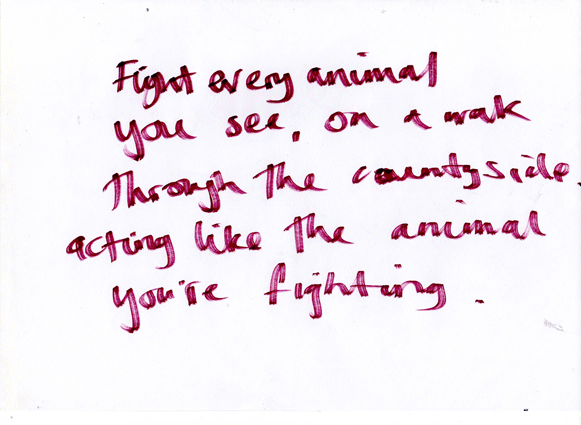 Fight every animal
you see, on a wak
through the countyside.
acting like the animal
you're fighting.